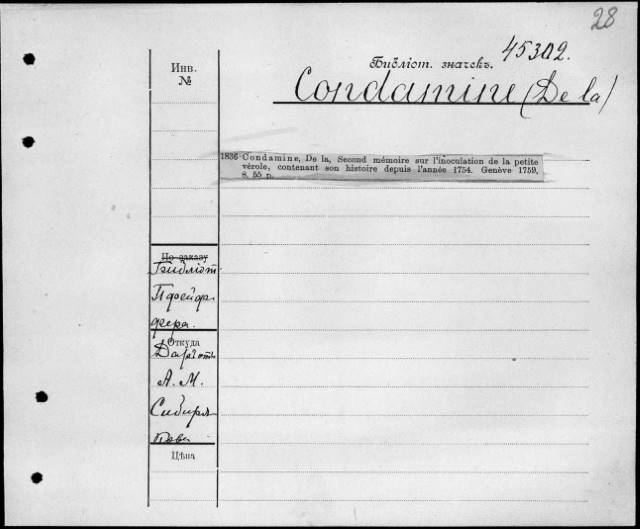 28
45302.
Инв.
№
Библіот. значекъ.
Condamine (De la)
1836 Condamine, De la, Second mémoire sur l'inoculation de la petite
vérole, contenant son histoire depuis l'année 1754. Genève 1759.
8. 55 p.
По заказу
Библіот
Пфейф
фера.
Откуда
Даръ отъ
А. М.
Сибиря
кова
Цѣна